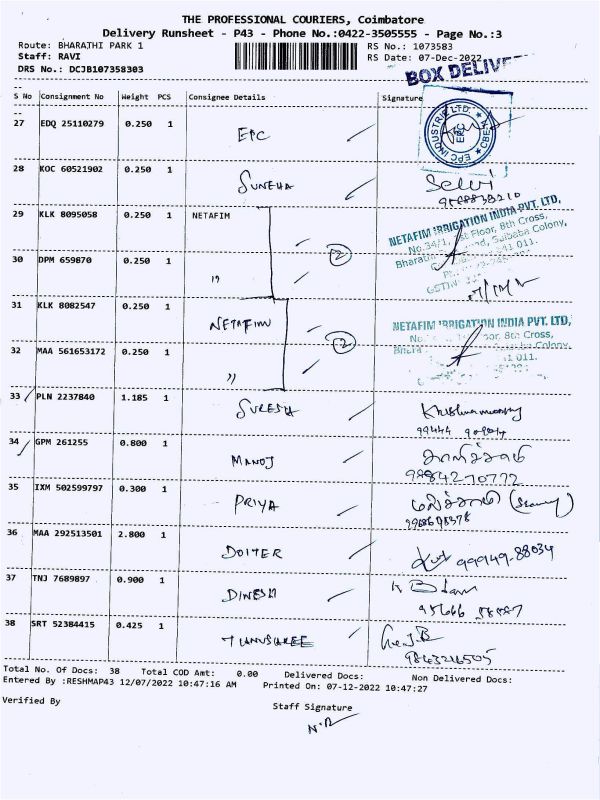 THE PROFESSIONAL COURIERS, Coimbatore
Delivery Runsheet - P43 - Phone No.:0422-3505555 - Page No.:3
Route: BHARATHI PARK 1
RS No.: 1073583
Staff: RAVI
RS Date: 07-Dec-2022
DRS No.: DCJB107358303
BOX DELIVE
S No Consignment No Weight PCS Consignee Details Signature
27 EDQ 25110279 0.250 1 EPC
EPC INDUSTRIE LTD. CBE
28 KOC 60521902 0.250 1 SUNEHA Selvi
29 KLK 8095058 0.250 1 NETAFIM
NETAFIM IRRIGATION INDIA PVT. LTD,
No.34/1, Floor, 8th Cross,
Saibaba Colony,
641 011.
GSTIN
2
30 DPM 659870 0.250 1 "
31 KLK 8082547 0.250 1 NETAFIM
NETAFIM IRRIGATION INDIA PVT. LTD,
No. 8th Cross,
Colony,
2
32 MAA 561653172 0.250 1 "
33 PLN 2237840 1.185 1 SURESH
34 GPM 261255 0.800 1 MANOJ
9984270772
35 IXM 502599797 0.300 1 PRIYA
36 MAA 292513501 2.800 1 DOITER 99949.88034
37 TNJ 7689897 0.900 1 DINESH
38 SRT 52384415 0.425 1 THANUSHREE
9843216505
Total No. Of Docs: 38 Total COD Amt: 0.00 Delivered Docs: Non Delivered Docs:
Entered By :RESHMAP43 12/07/2022 10:47:16 AM Printed On: 07-12-2022 10:47:27
Verified By
Staff Signature